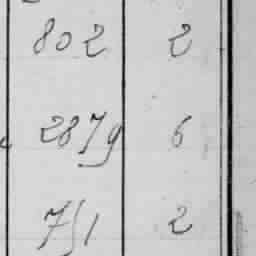 802 2
2879 6
751 2